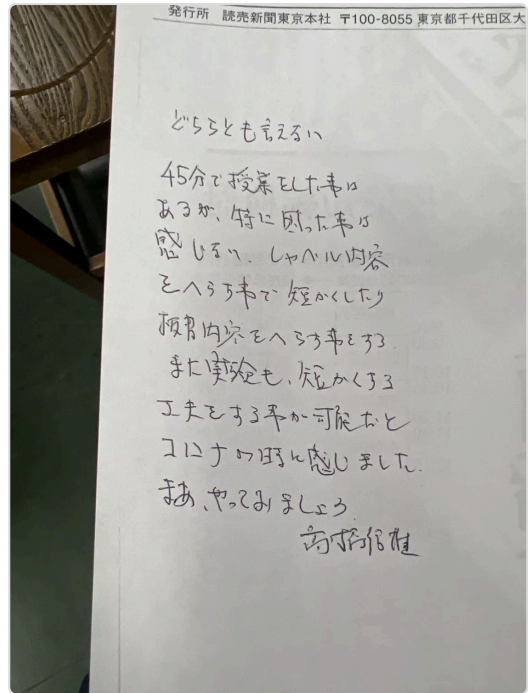 発行所 読売新聞東京本社 〒100-8055 東京都千代田区大
どちらとも言えない
45分で授業をした事は
あるが、特に困った事は
感じない。シャベル内容
をへらす事で短かくしたり
板書内容をへらす事をする
また実験も、短かくする
工夫をする事が可能だと
コロナの時に感じました。
まあ、やってみましょう
高橋信雄